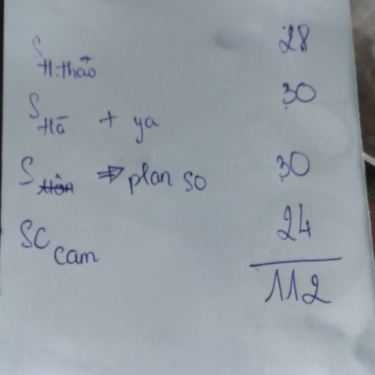 S H.thảo 28
S Hà + ya 30
S ⇒ plan so 30
SC cam 24
112